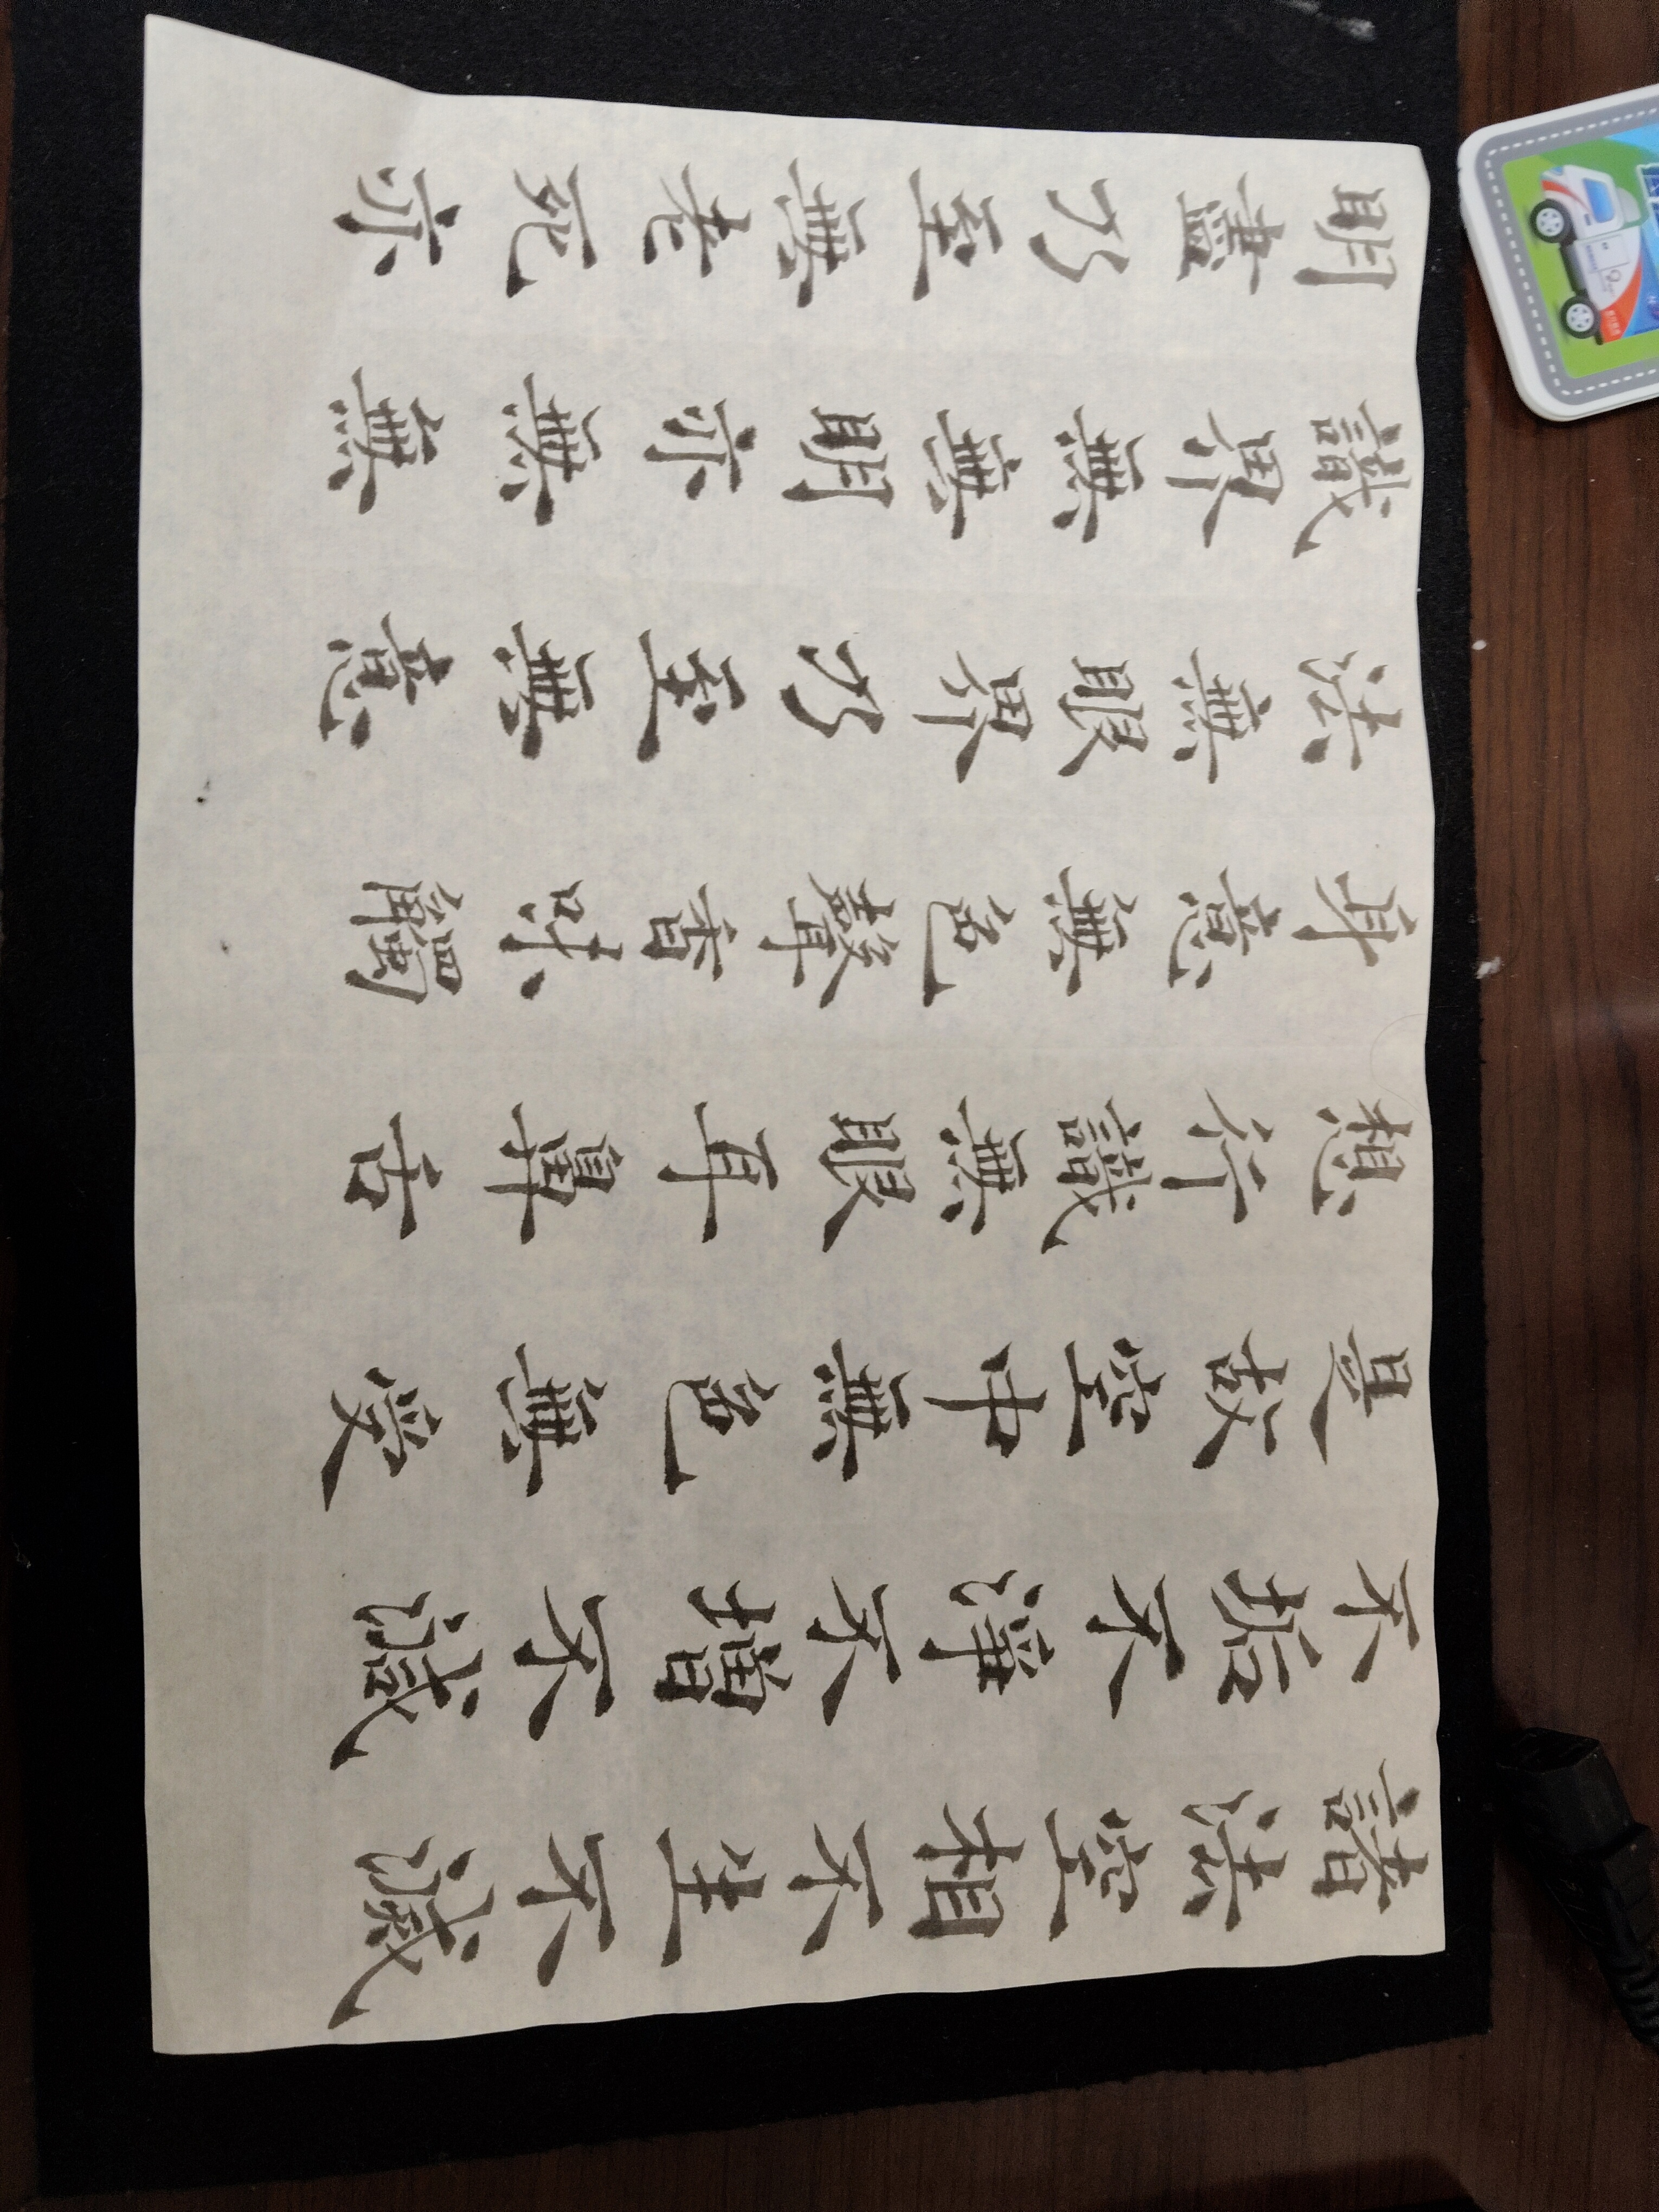 諸法空相不生不滅
不垢不淨不增不減
是故空中無色無受
想行識無眼耳鼻舌
身意無色聲香味觸
法無眼界乃至無意
識界無無明亦無無
明盡乃至無老死亦